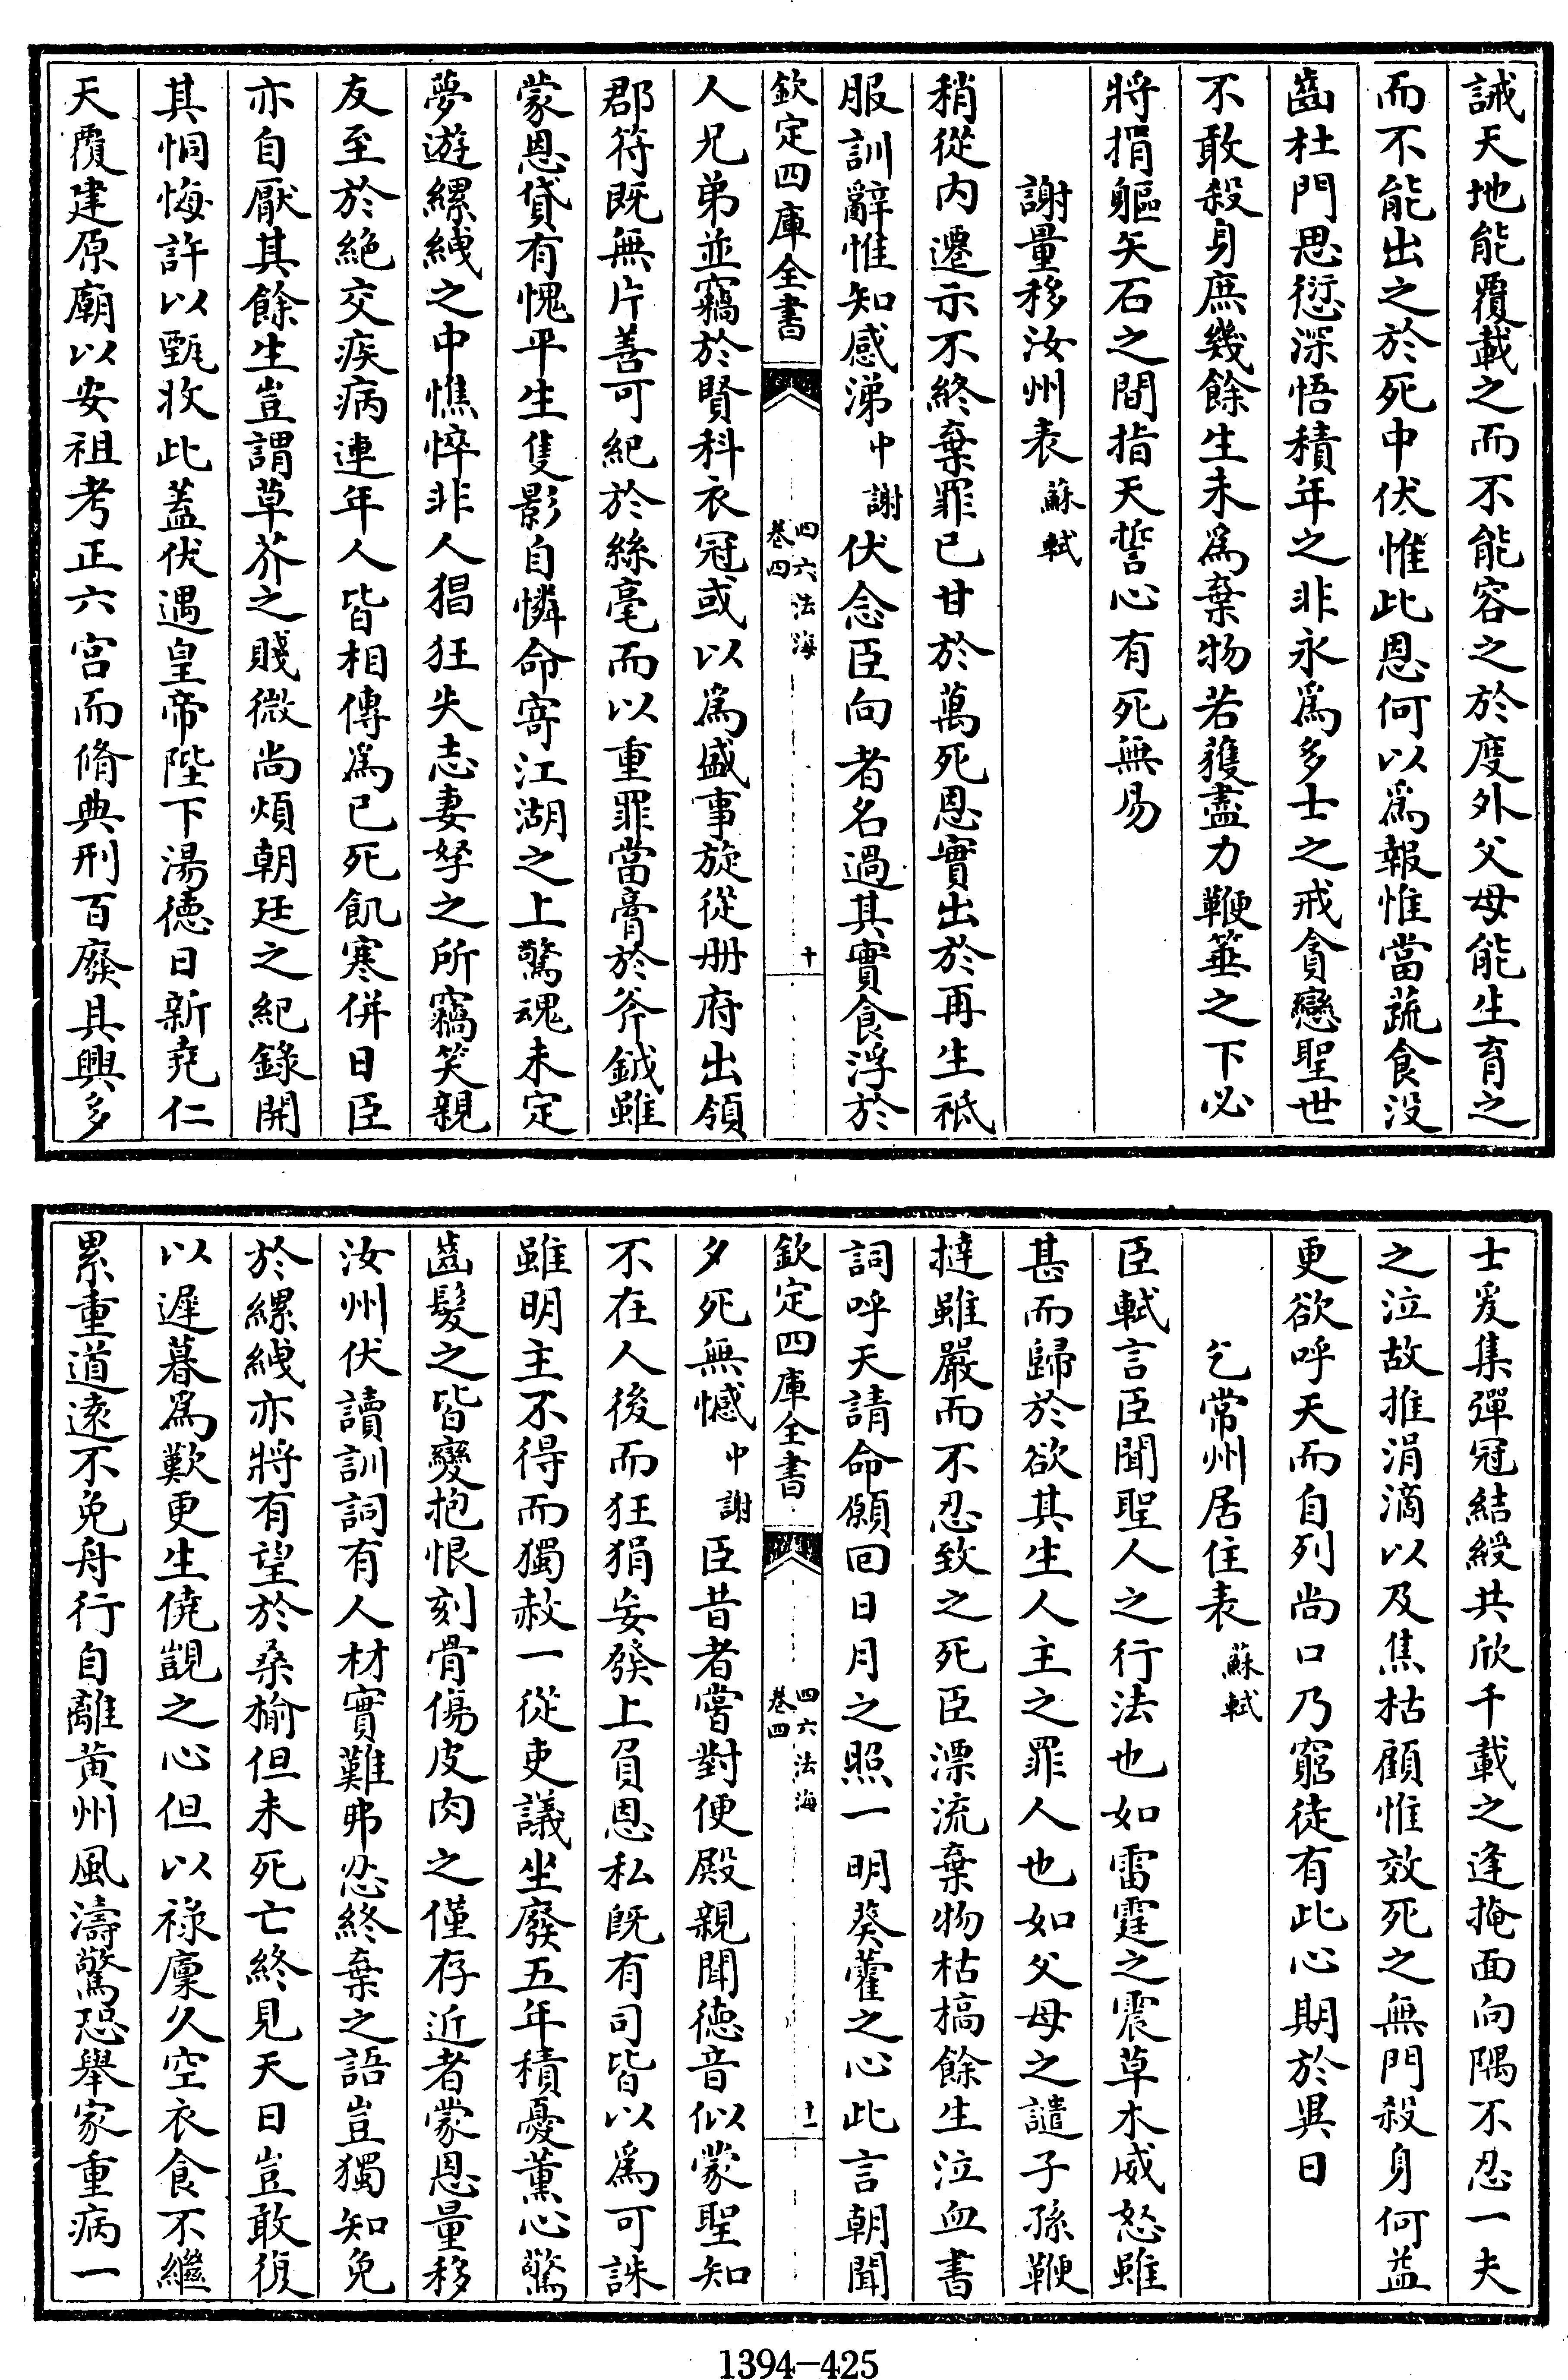 誡天地能覆載之而不能容之於度外父母能生育之
而不能出之於死中伏惟此恩何以爲報惟當蔬食没
齒杜門思愆深悟積年之非永爲多士之戒貪戀聖世
不敢殺身庶幾餘生未爲棄物若獲盡力鞭箠之下必
將捐軀矢石之間指天誓心有死無易
謝量移汝州表 蘇軾
稍從内遷示不終棄罪已甘於萬死恩實出於再生祗
服訓辭惟知感涕中謝伏念臣向者名過其實食浮於
欽定四庫全書 四六法海 卷四 十
人兄弟並竊於賢科衣冠或以爲盛事旋從册府出領
郡符既無片善可紀於絲毫而以重罪當膏於斧鉞雖
蒙恩貸有愧平生隻影自憐命寄江湖之上驚魂未定
夢遊縲絏之中憔悴非人猖狂失志妻孥之所竊笑親
友至於絶交疾病連年人皆相傳爲已死飢寒併日臣
亦自厭其餘生豈謂草芥之賤微尚煩朝廷之紀錄開
其恫悔許以甄收此蓋伏遇皇帝陛下湯德日新堯仁
天覆建原廟以安祖考正六宫而脩典刑百廢具興多
士爰集彈冠結綬共欣千載之逢掩面向隅不忍一夫
之泣故推涓滴以及焦枯顧惟效死之無門殺身何益
更欲呼天而自列尚口乃窮徒有此心期於異日
乞常州居住表 蘇軾
臣軾言臣聞聖人之行法也如雷霆之震草木威怒雖
甚而歸於欲其生人主之罪人也如父母之譴子孫鞭
撻雖嚴而不忍致之死臣漂流棄物枯槁餘生泣血書
詞呼天請命願回日月之照一明葵藿之心此言朝聞
欽定四庫全書 四六法海 卷四 十一
夕死無憾中謝臣昔者嘗對便殿親聞德音似蒙聖知
不在人後而狂狷妄發上負恩私既有司皆以爲可誅
雖明主不得而獨赦一從吏議坐廢五年積憂薰心驚
齒髮之皆變抱恨刻骨傷皮肉之僅存近者蒙恩量移
汝州伏讀訓詞有人材實難弗忍終棄之語豈獨知免
於縲絏亦將有望於桑榆但未死亡終見天日豈敢復
以遲暮爲歎更生僥覬之心但以祿廩久空衣食不繼
累重道遠不免舟行自離黄州風濤驚恐舉家重病一
1394-425